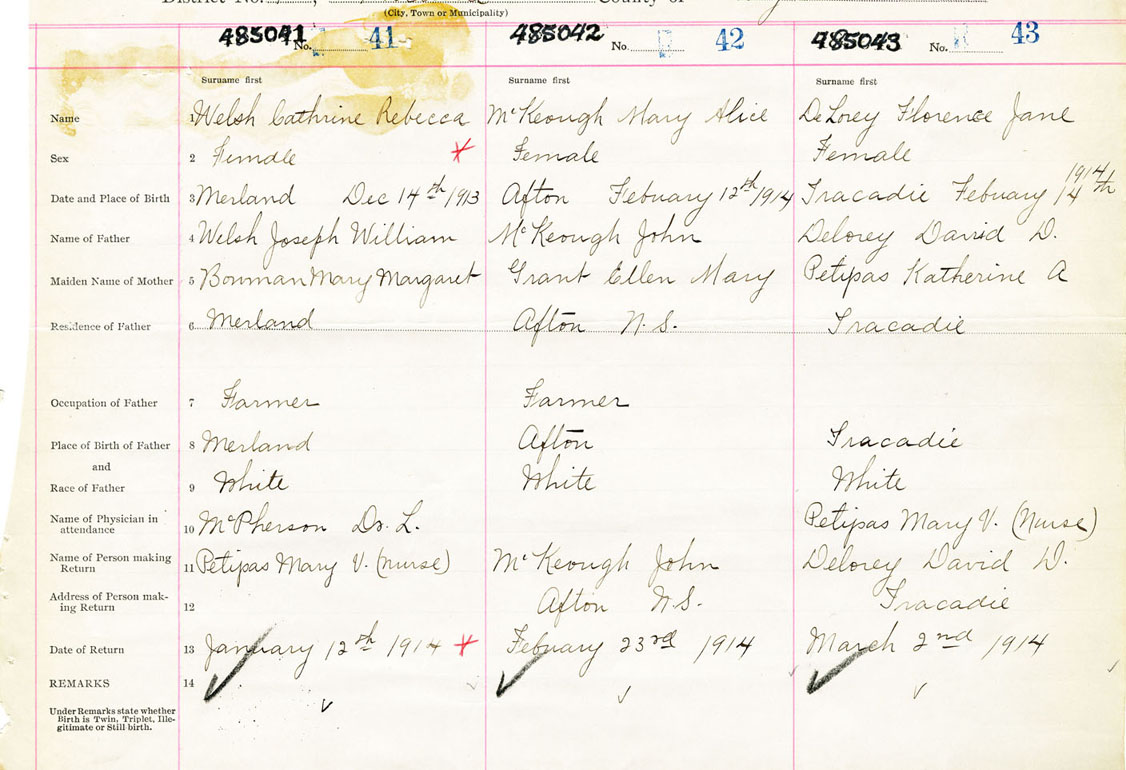 District No. County of
(City, Town or Municipality)
485041 No. 41 485042 No. 42 485043 No. 43
Surname first Surname first Surname first
Name 1 Welsh Cathrine Rebecca McKeough Mary Alice DeLorey Florence Jane
Sex 2 Female Female Female
Date and Place of Birth 3 Merland Dec 14th 1913 Afton Febuary 12th 1914 Tracadie Febuary 14th 1914
Name of Father 4 Welsh Joseph William McKeough John Delorey David D.
Maiden Name of Mother 5 Bowman Mary Margaret Grant Ellen Mary Petipas Katherine A
Residence of Father 6 Merland Afton N.S. Tracadie
Occupation of Father 7 Farmer Farmer
Place of Birth of Father 8 Merland Afton Tracadie
and
Race of Father 9 White White White
Name of Physician in
attendance 10 McPherson Dr. L. Petipas Mary V. (Nurse)
Name of Person making
Return 11 Petipas Mary V. (nurse) McKeough John Delorey David D.
Address of Person mak-
ing Return 12 Afton N.S. Tracadie
Date of Return 13 January 12th 1914 Febuary 23rd 1914 March 2nd 1914
REMARKS 14
Under Remarks state whether
Birth is Twin, Triplet, Ille-
gitimate or Still birth.